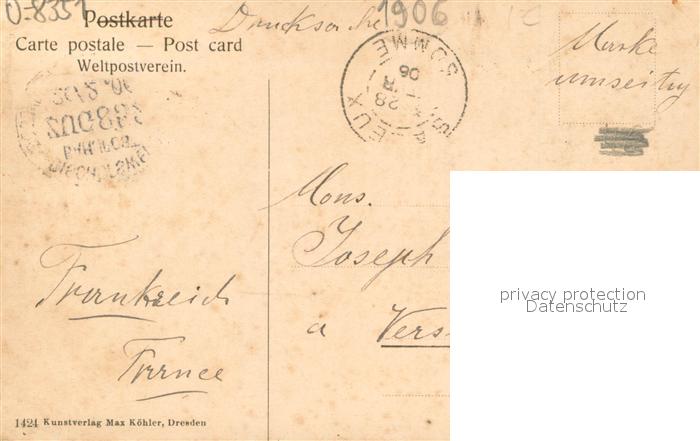 O-8351
Postkarte Drucksache 1906
Carte postale — Post card
Weltpostverein.
Marke
umseitig
EU
SOMME
28
06
Mons.
Joseph
a Vers
Frankreich
France
1424 Kunstverlag Max Köhler, Dresden
privacy protection
Datenschutz